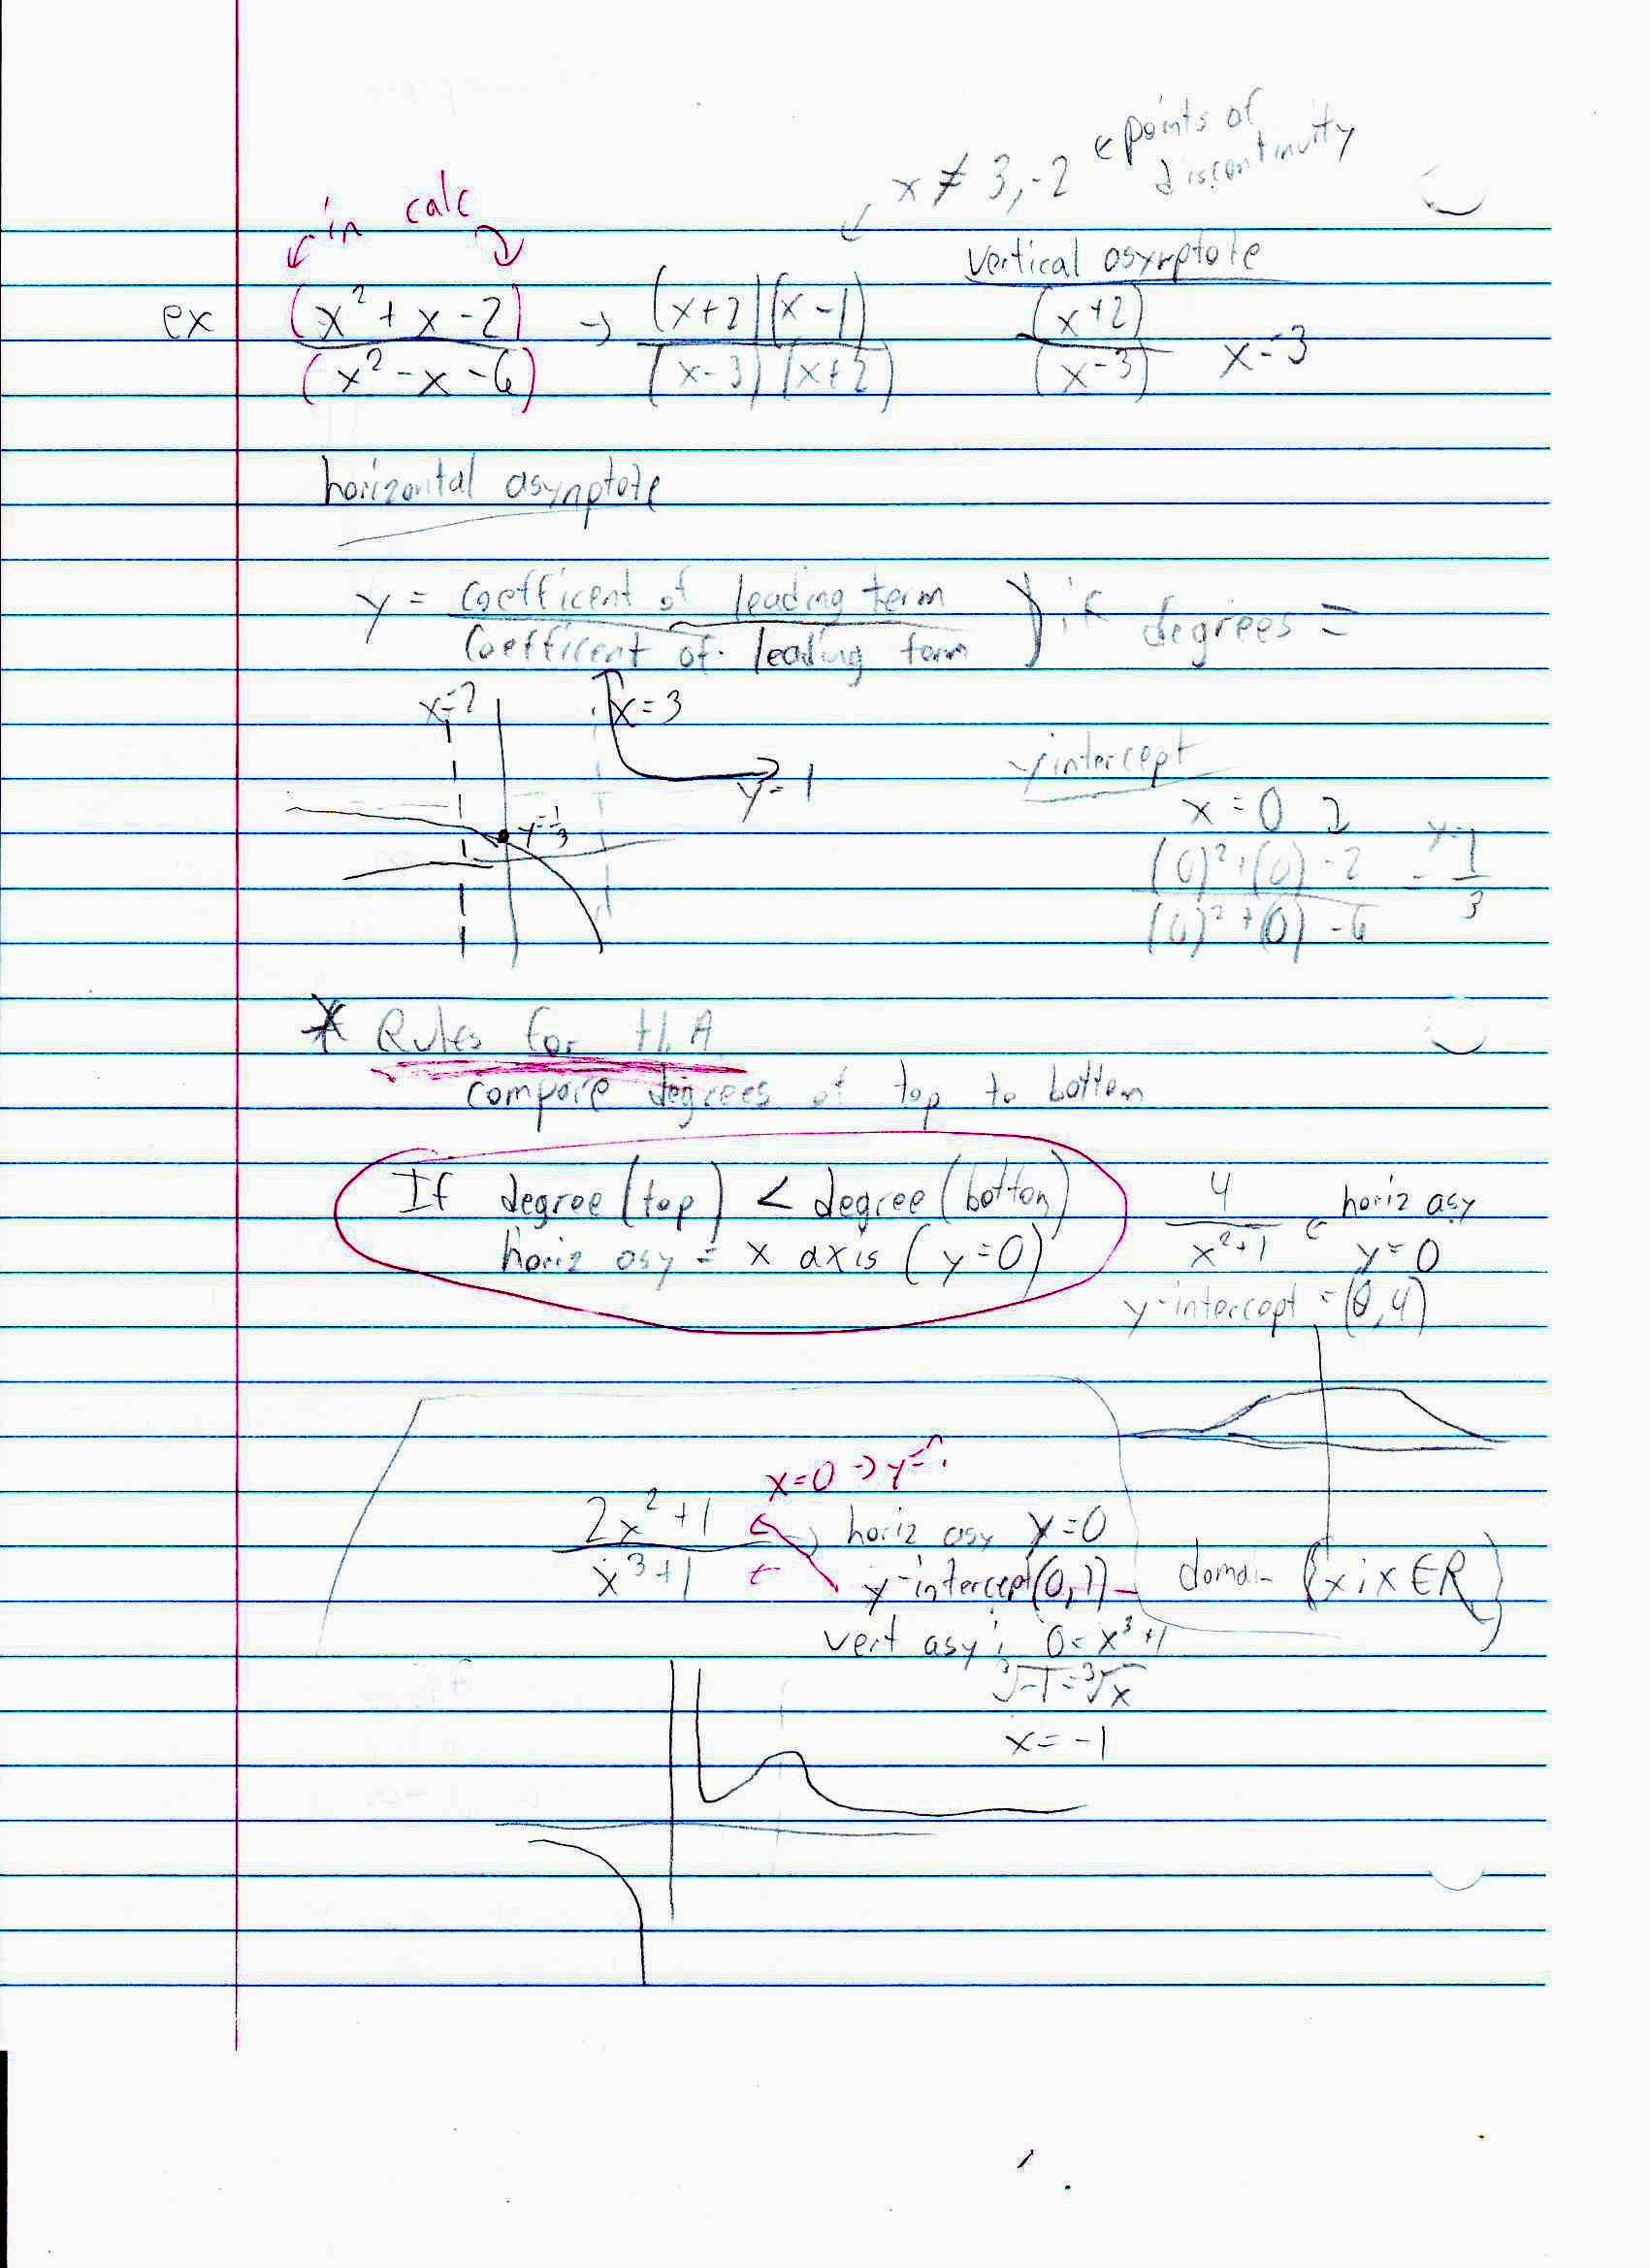 x ≠ 3, -2 ← points of discontinuity
in calc
vertical asymptote
ex (x² + x - 2) / (x² - x - 6) → (x+2)(x-1) / (x-3)(x+2) (x+2) / (x-3) x=3
horizontal asymptote
y = coefficent of leading term / coefficent of leading term ) if degrees =
x=2 x=3
y=1
y=1/3
y intercept
x = 0
(0)² + (0) - 2 / (0)² + (0) - 6 = y= 1/3
* Rules for H.A
compare degrees of top to bottom
If degree (top) < degree (bottom)
horiz asy = x axis (y=0)
4 / x²+1 ← horiz asy
y=0
y-intercept = (0,4)
x=0 → y=?
2x²+1 / x³+1 → horiz asy y=0
y-intercept (0,1)
domain {x : x ∈ R}
vert asy: 0=x³+1
³√-1 = ³√x
x = -1